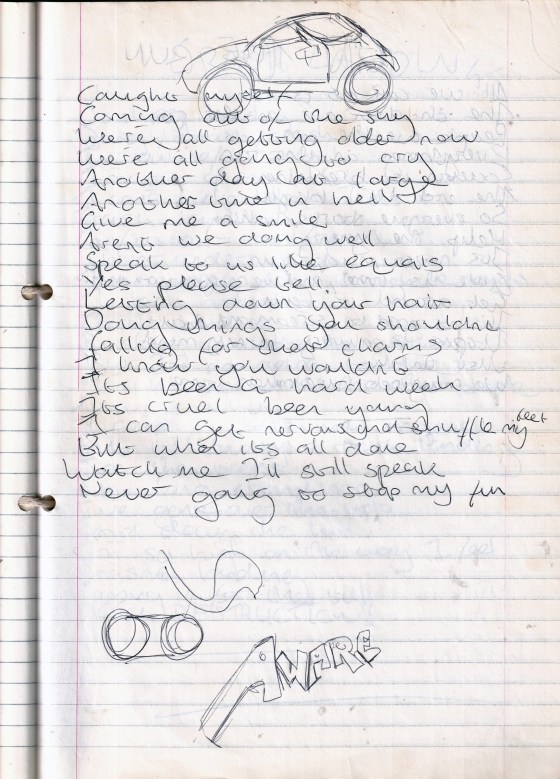 Caught myself
Coming out of the shy
We're all getting older now
We're all going to cry
Another day at large
Another time in hell
Give me a smile
Arent we doing well
Speak to us like equals
Yes please tell
Letting down your hair
Doing things you shouldnt
falling for their charms
I know you wouldnt
Its been a hard week
Its cruel been young
I can get nervous and shuffle my feet
But when its all done
Watch me I'll still speak
Never going to stop my fun
AWARE